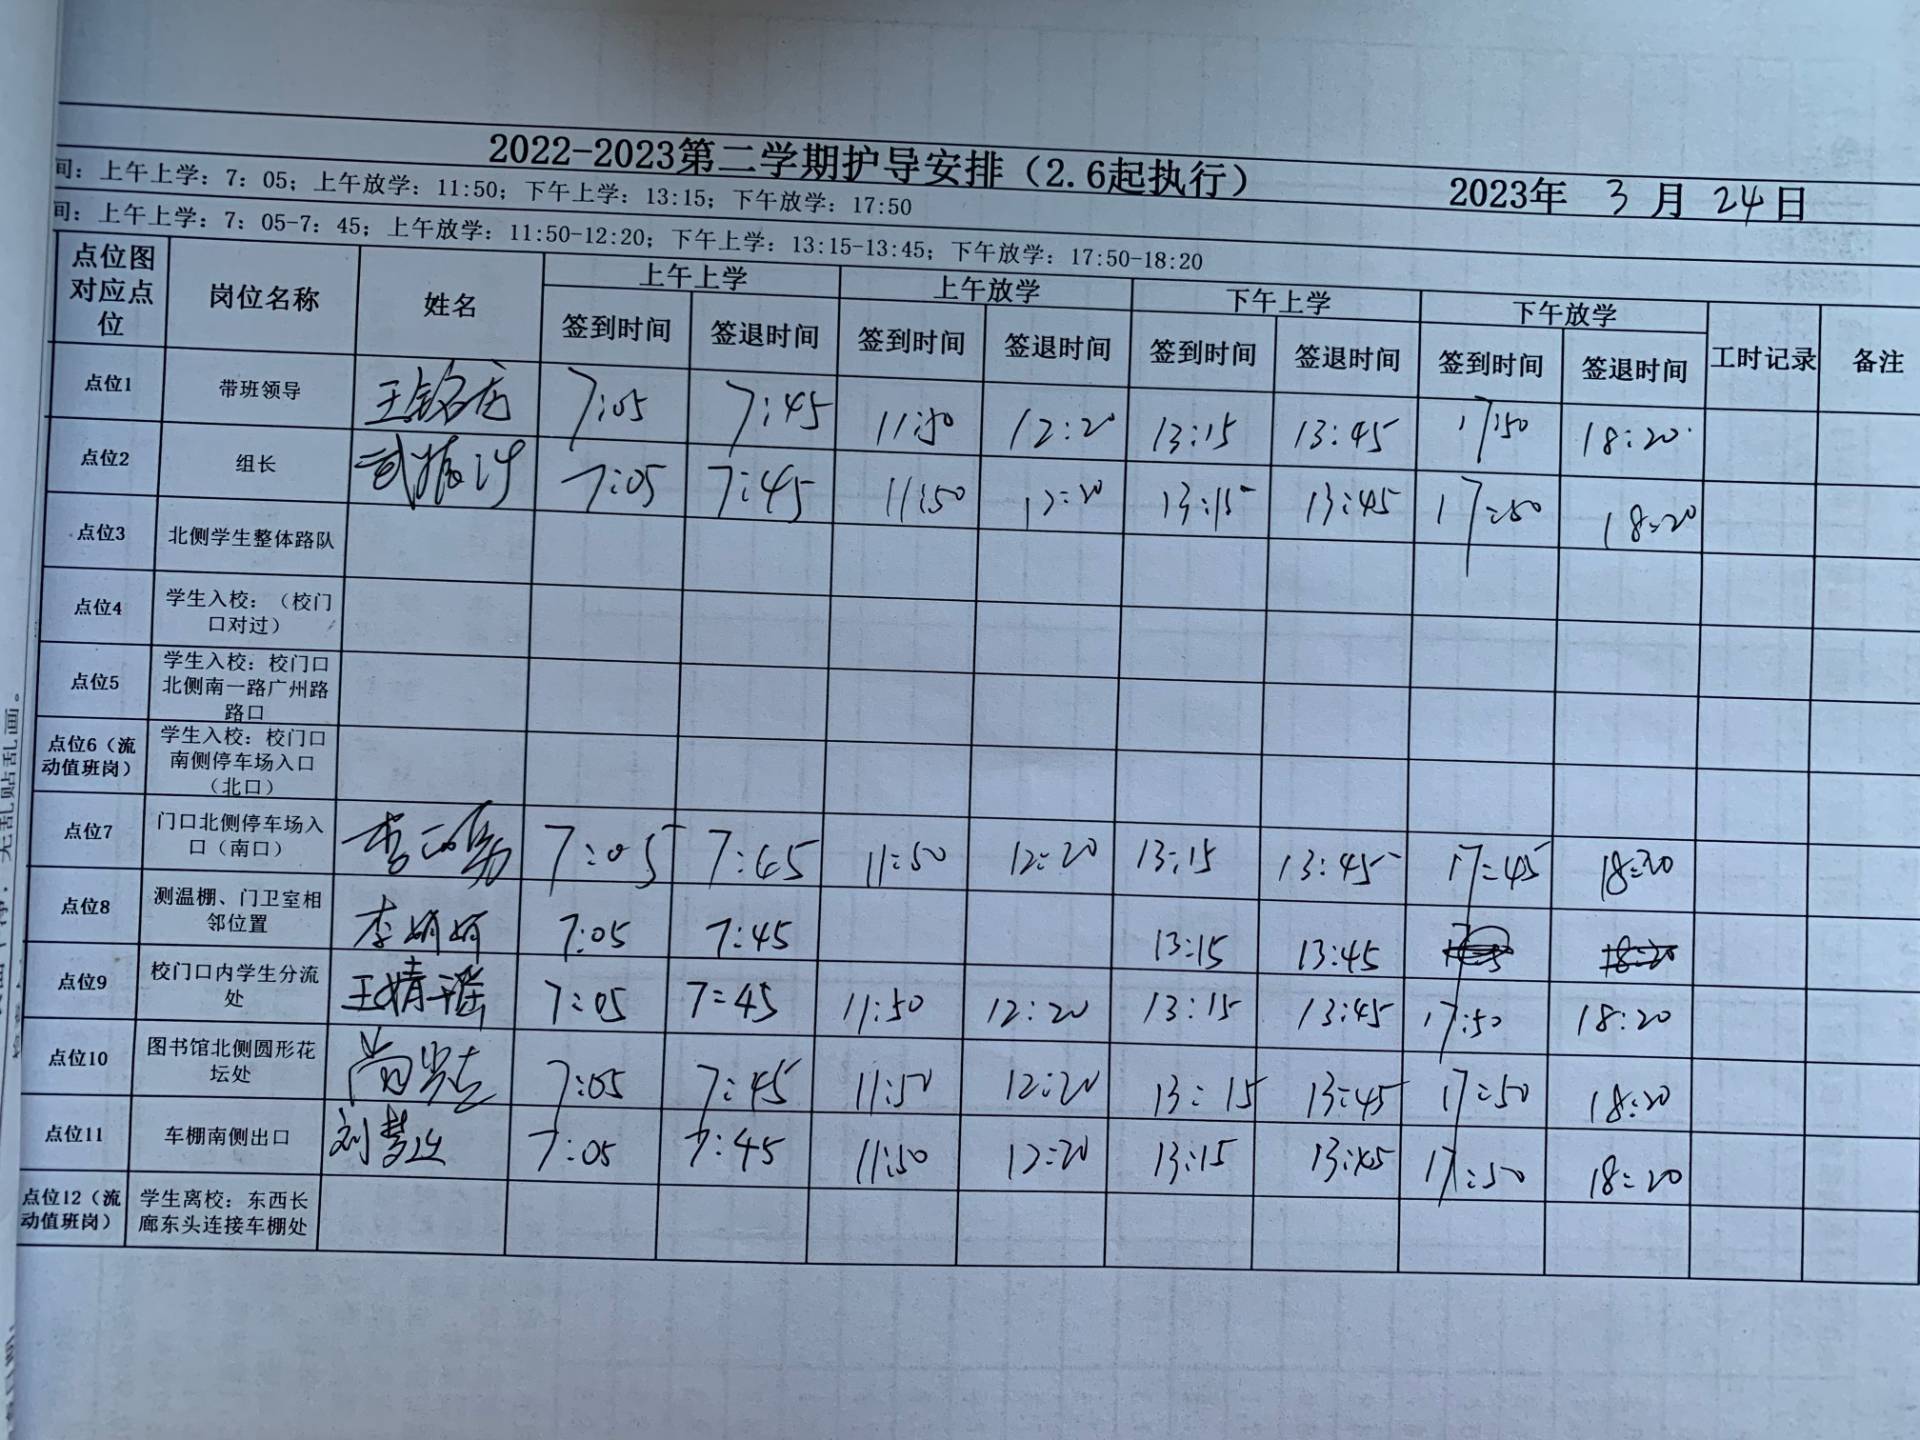 2022-2023第二学期护导安排（2.6起执行） 2023年 3 月 24 日
间：上午上学：7：05；上午放学：11:50；下午上学：13:15；下午放学：17:50
间：上午上学：7：05-7：45；上午放学：11:50-12:20；下午上学：13:15-13:45；下午放学：17:50-18:20
点位图对应点位 岗位名称 姓名 上午上学 上午放学 下午上学 下午放学 工时记录 备注
签到时间 签退时间 签到时间 签退时间 签到时间 签退时间 签到时间 签退时间
点位1 带班领导 王铭龙 7:05 7:45 11:50 12:20 13:15 13:45 17:50 18:20
点位2 组长 武振 7:05 7:45 11:50 12:20 13:15 13:45 17:50 18:20
点位3 北侧学生整体路队
点位4 学生入校：（校门
口对过）
点位5 学生入校：校门口
北侧南一路广州路
路口
点位6（流
动值班岗） 学生入校：校门口
南侧停车场入口
（北口）
点位7 门口北侧停车场入
口（南口） 李 7:05 7:45 11:50 12:20 13:15 13:45 17:45 18:20
点位8 测温棚、门卫室相
邻位置 李娟娟 7:05 7:45 13:15 13:45
点位9 校门口内学生分流
处 王婧瑶 7:05 7:45 11:50 12:20 13:15 13:45 17:50 18:20
点位10 图书馆北侧圆形花
坛处 尚 7:05 7:45 11:50 12:20 13:15 13:45 17:50 18:20
点位11 车棚南侧出口 刘梦 7:05 7:45 11:50 12:20 13:15 13:45 17:50 18:20
点位12（流
动值班岗） 学生离校：东西长
廊东头连接车棚处